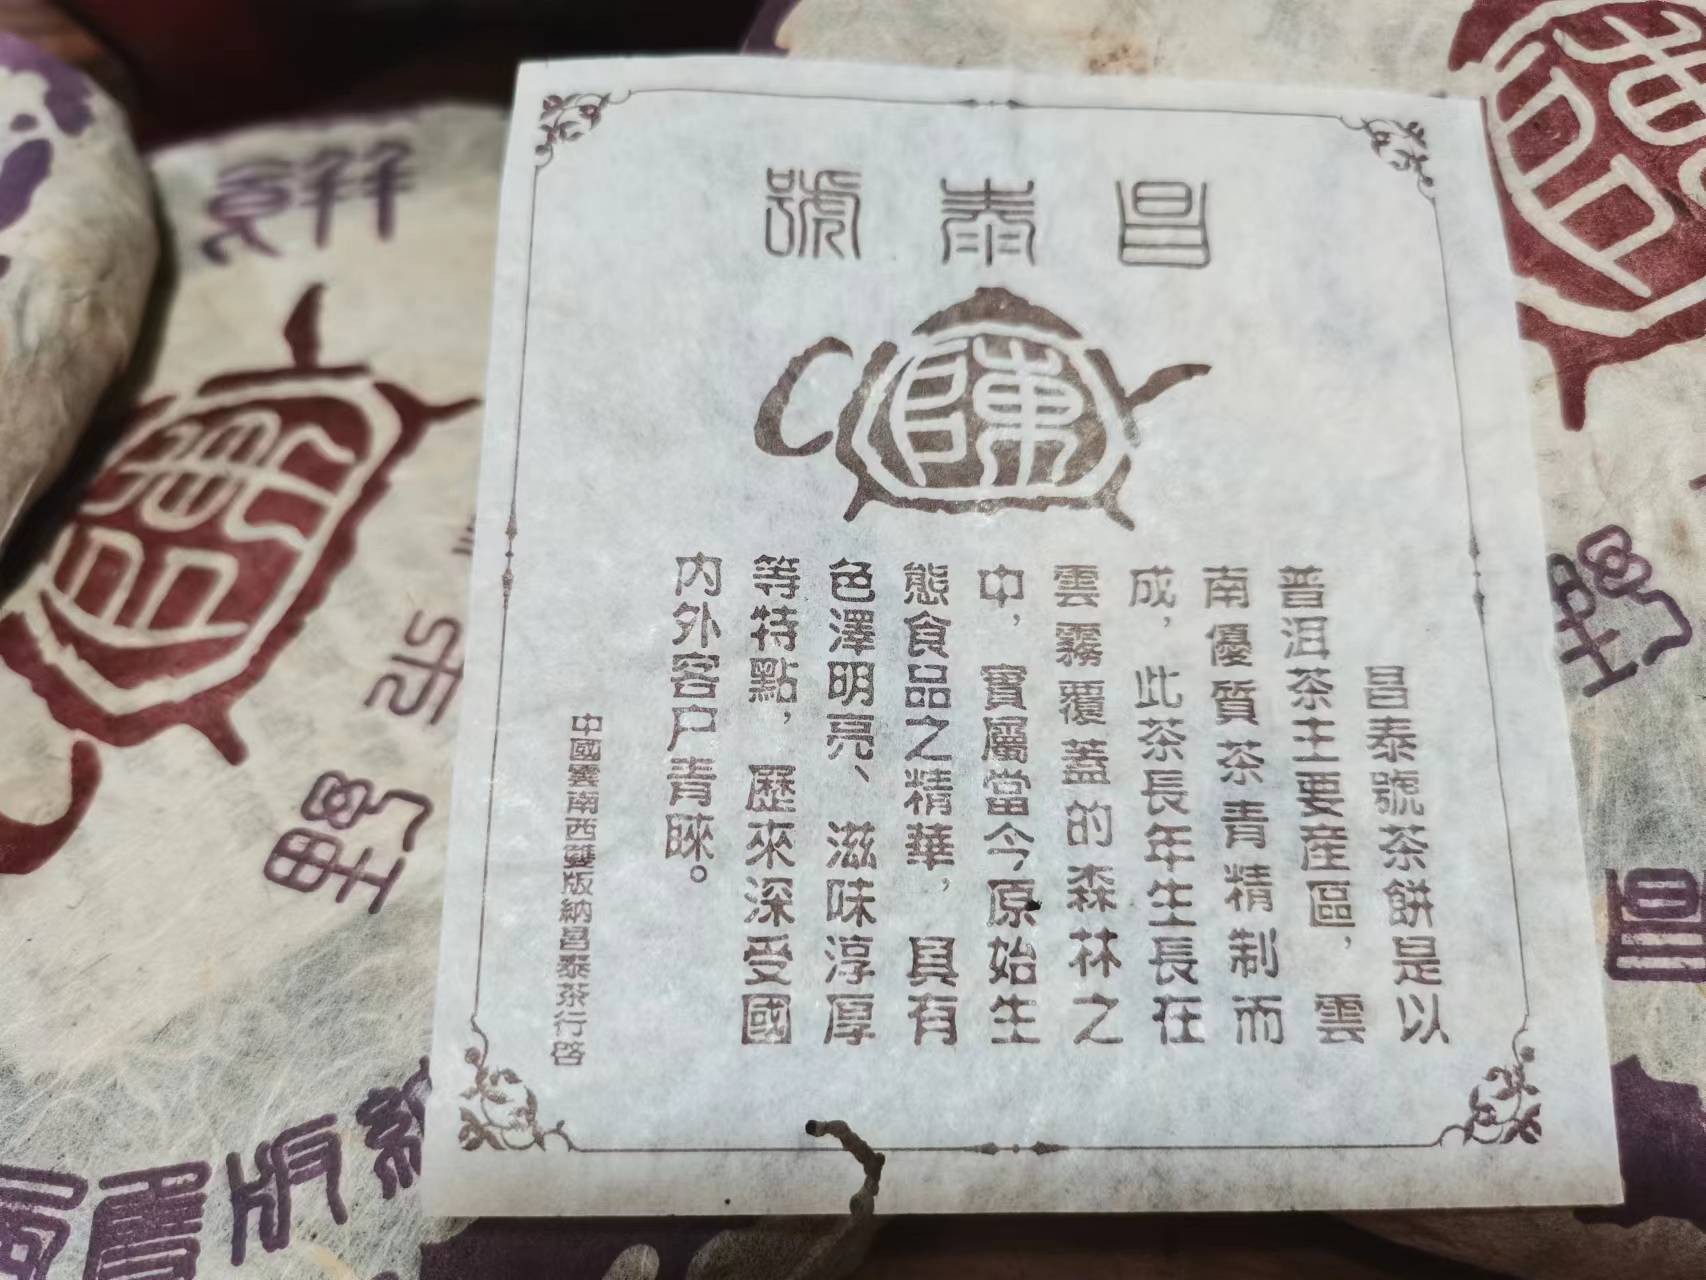 昌泰號
陳
昌泰號茶餅是以
普洱茶主要産區，雲
南優質茶青精制而
成，此茶長年生長在
雲霧覆蓋的森林之
中，實屬當今原始生
態食品之精華，具有
色澤明亮、滋味淳厚
等特點，歷來深受國
内外客户青睞。
中國雲南西雙版納昌泰茶行啓
野
昌
野
版納